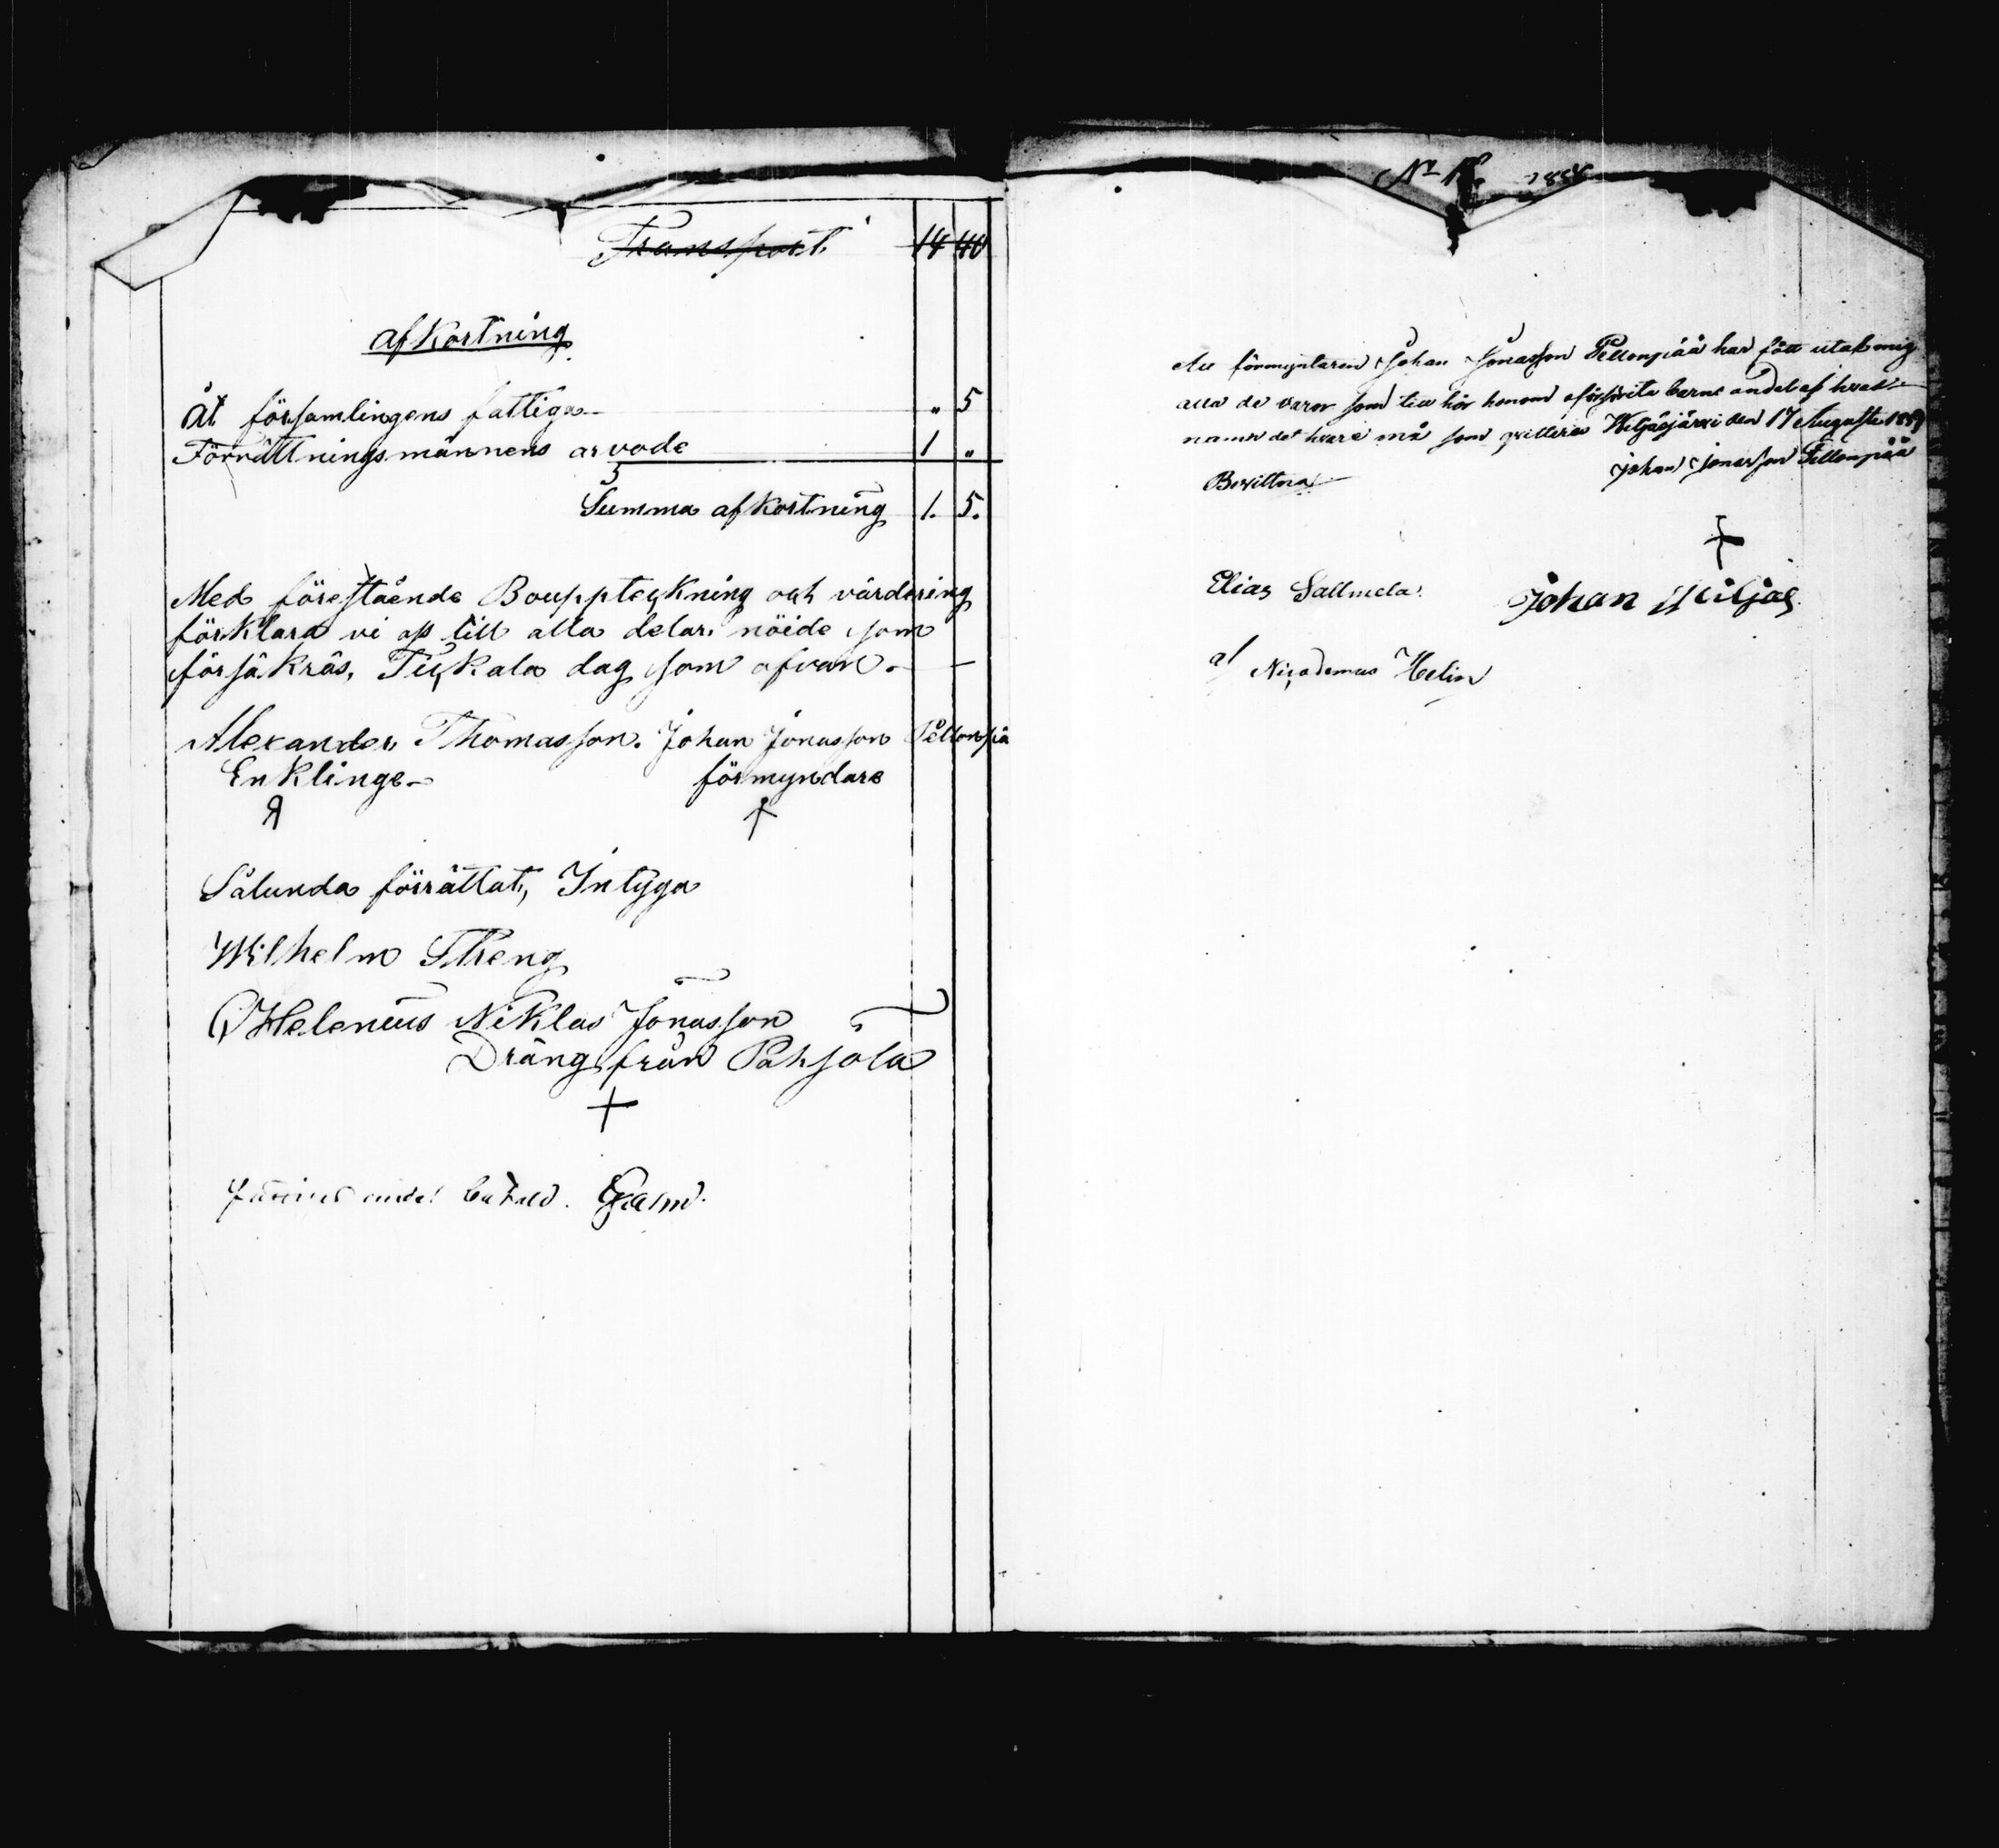 Transport 14 40
afkortning
Åt församlingens fattiga " 5
Förrättningsmännens arvode 1 "
Summa afkortning 1. 5.
Med förestående Bouppteckning och värdering
förklara vi oss till alla delar nöide som
försäkras, Tuckala dag som ofvan.
Alexander Thomasson. Johan Jonasson Pellonpä
Enklinge förmyndare
Sålunda förrättat, Intyga
Wilhelm Theng
Helenius Niklas Jonasson
Dräng från Pahjola
andel
No 1888
förmyntaren Johan Jonasson Pellonpää har fått utab mig
alla de varor som till hör honom barns andel af
namn det vare må som qvitteras den 17 Augusti 1889
Johan Jonasson Pellonpää
Bevittna
Elias Sallmela Johan Wiljas
af Nicodemus Helin